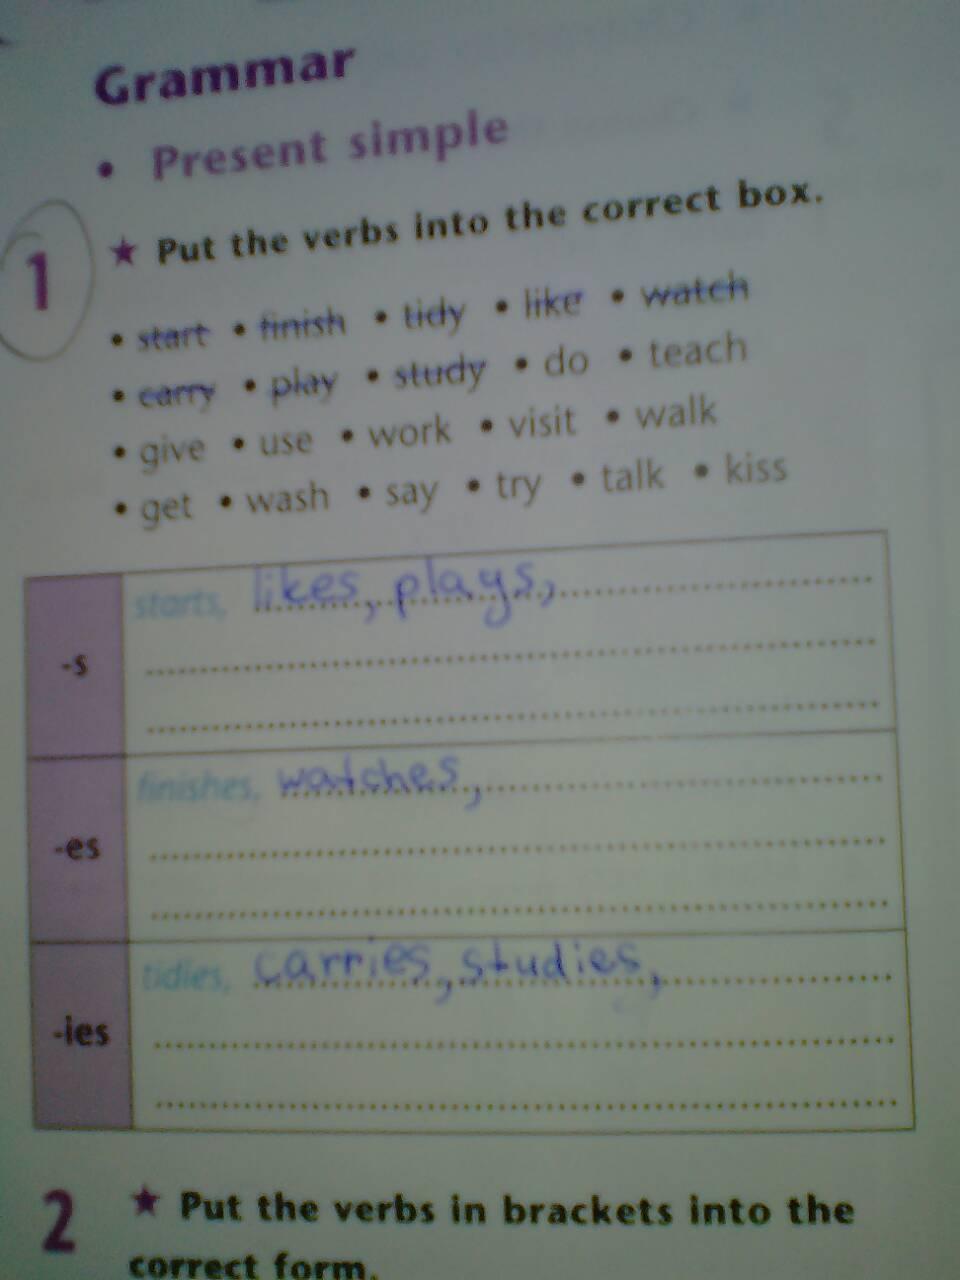 Grammar
• Present simple
1 ★ Put the verbs into the correct box.
• start • finish • tidy • like • watch
• carry • play • study • do • teach
• give • use • work • visit • walk
• get • wash • say • try • talk • kiss
-s starts, likes, plays,
-es finishes, watches,
-ies tidies, carries, studies,
2 ★ Put the verbs in brackets into the
correct form.